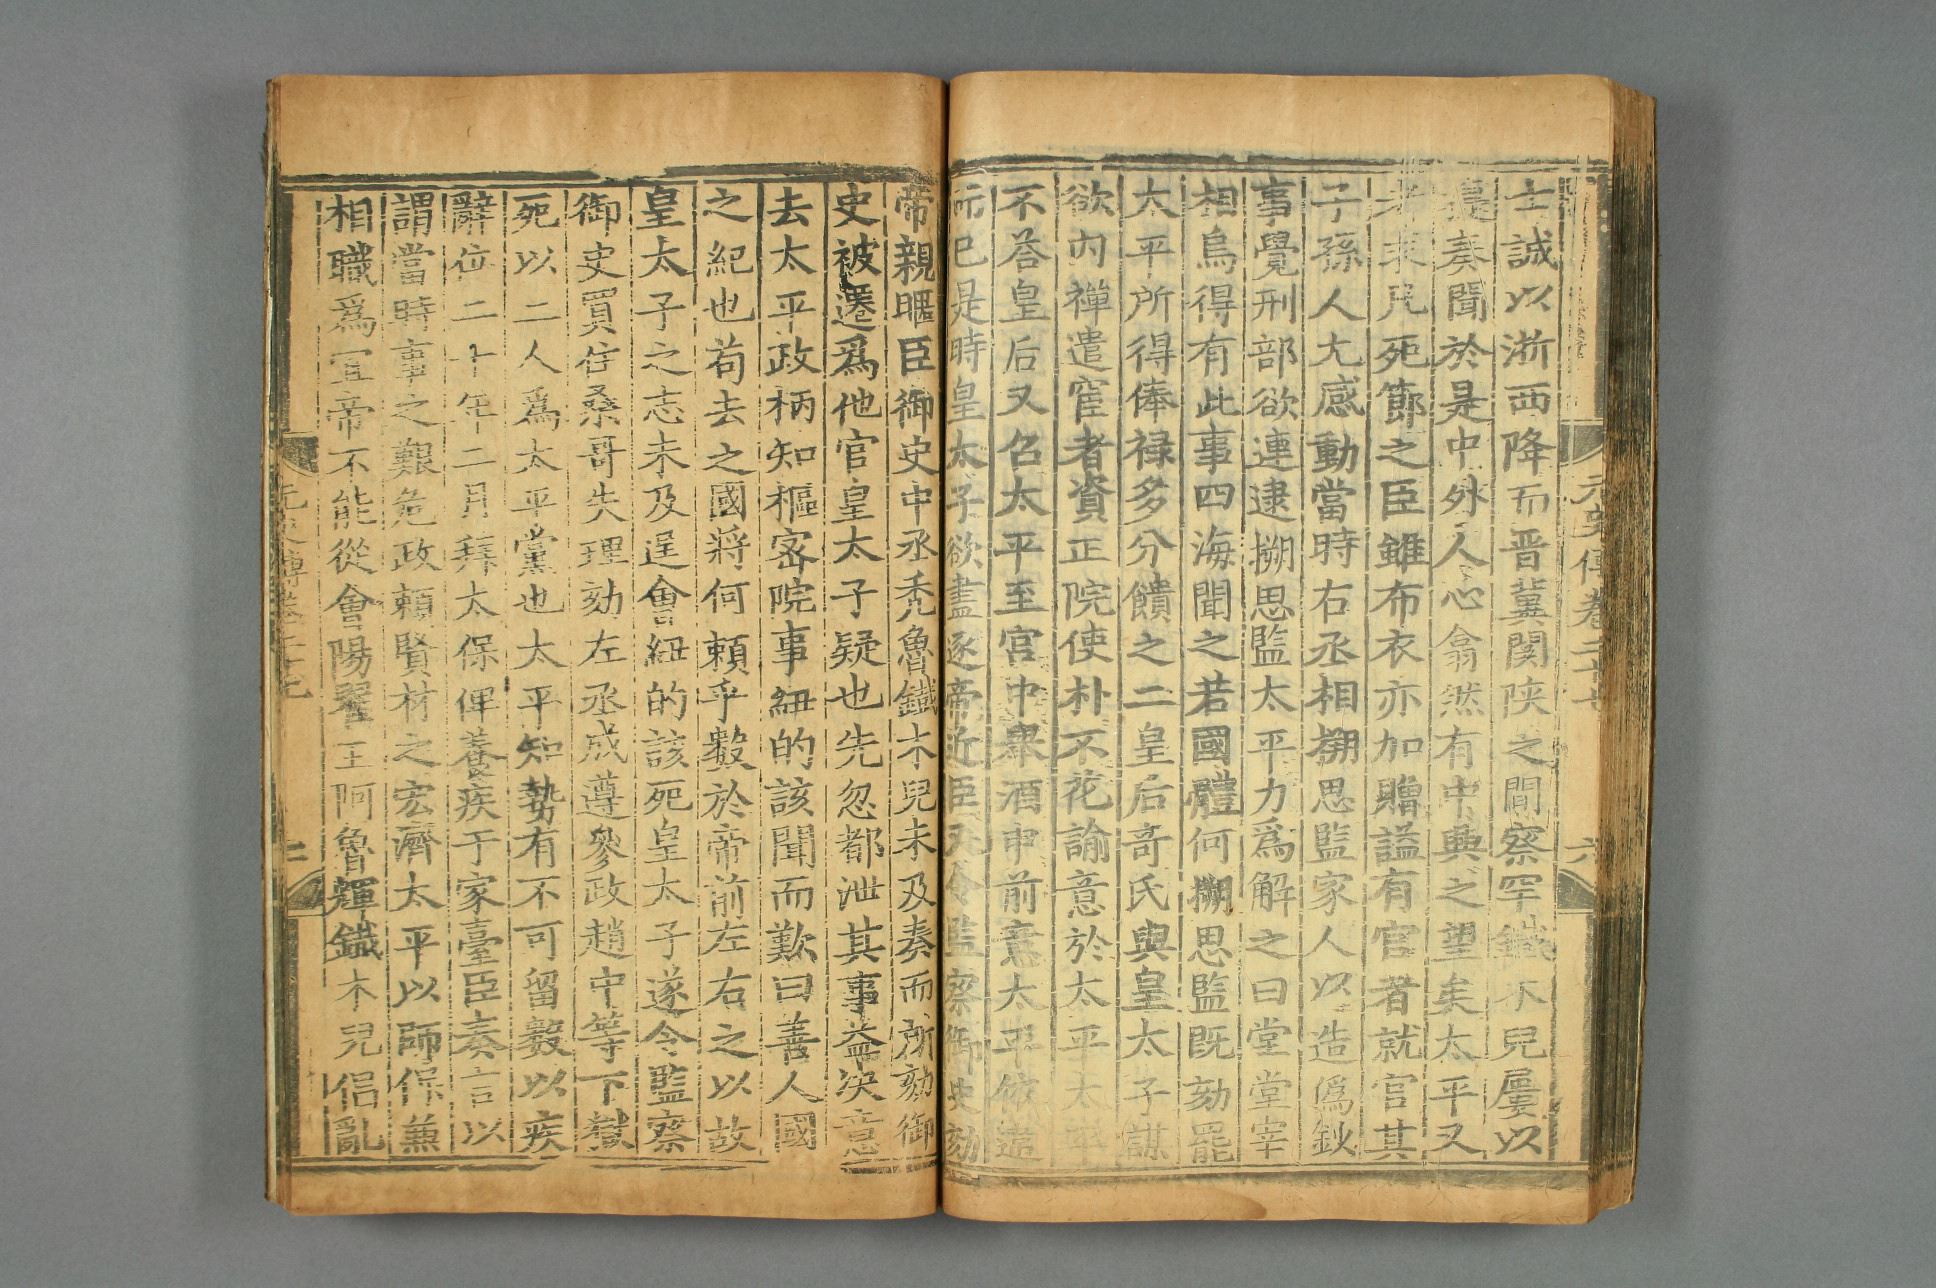 元史傳卷二十七
六
士誠以浙西降而晋冀関陕之間察罕鐵木兒屢以
捷奏聞於是中外人心翕然有中興之望矣太平又
考求凢死節之臣雖布衣亦加贈謚有官者就官其
子孫人尤感動當時右丞相搠思監家人以造僞鈔
事覺刑部欲連逮搠思監太平力爲解之曰堂堂宰
相烏得有此事四海聞之若國體何搠思監既劾罷
太平所得俸禄多分饋之二皇后哥氏與皇太子謀
欲内禪遣宦者資正院使朴不花諭意於太平太平
不荅皇后又召太平至宮中舉酒申前意太平依違
而已是時皇太子欲盡逐帝近臣又令監察御史劾
帝親暱臣御史中丞秃魯鐵木兒未及奏而所劾御
史被遷爲他官皇太子疑也先忽都泄其事益决意
去太平政柄知樞宻院事紐的該聞而歎曰善人國
之紀也苟去之國將何頼乎數於帝前左右之以故
皇太子之志未及逞會紐的該死皇太子遂令監察
御史買住桑哥失理劾左丞成遵參政趙中等下獄
死以二人爲太平黨也太平知勢有不可留數以疾
辭位二十年二月拜太保俾養疾于家臺臣奏言以
謂當時事之艱危政頼賢材之宏濟太平以師保兼
相職爲宜帝不能從會陽翟王阿魯輝鐵木兒倡亂